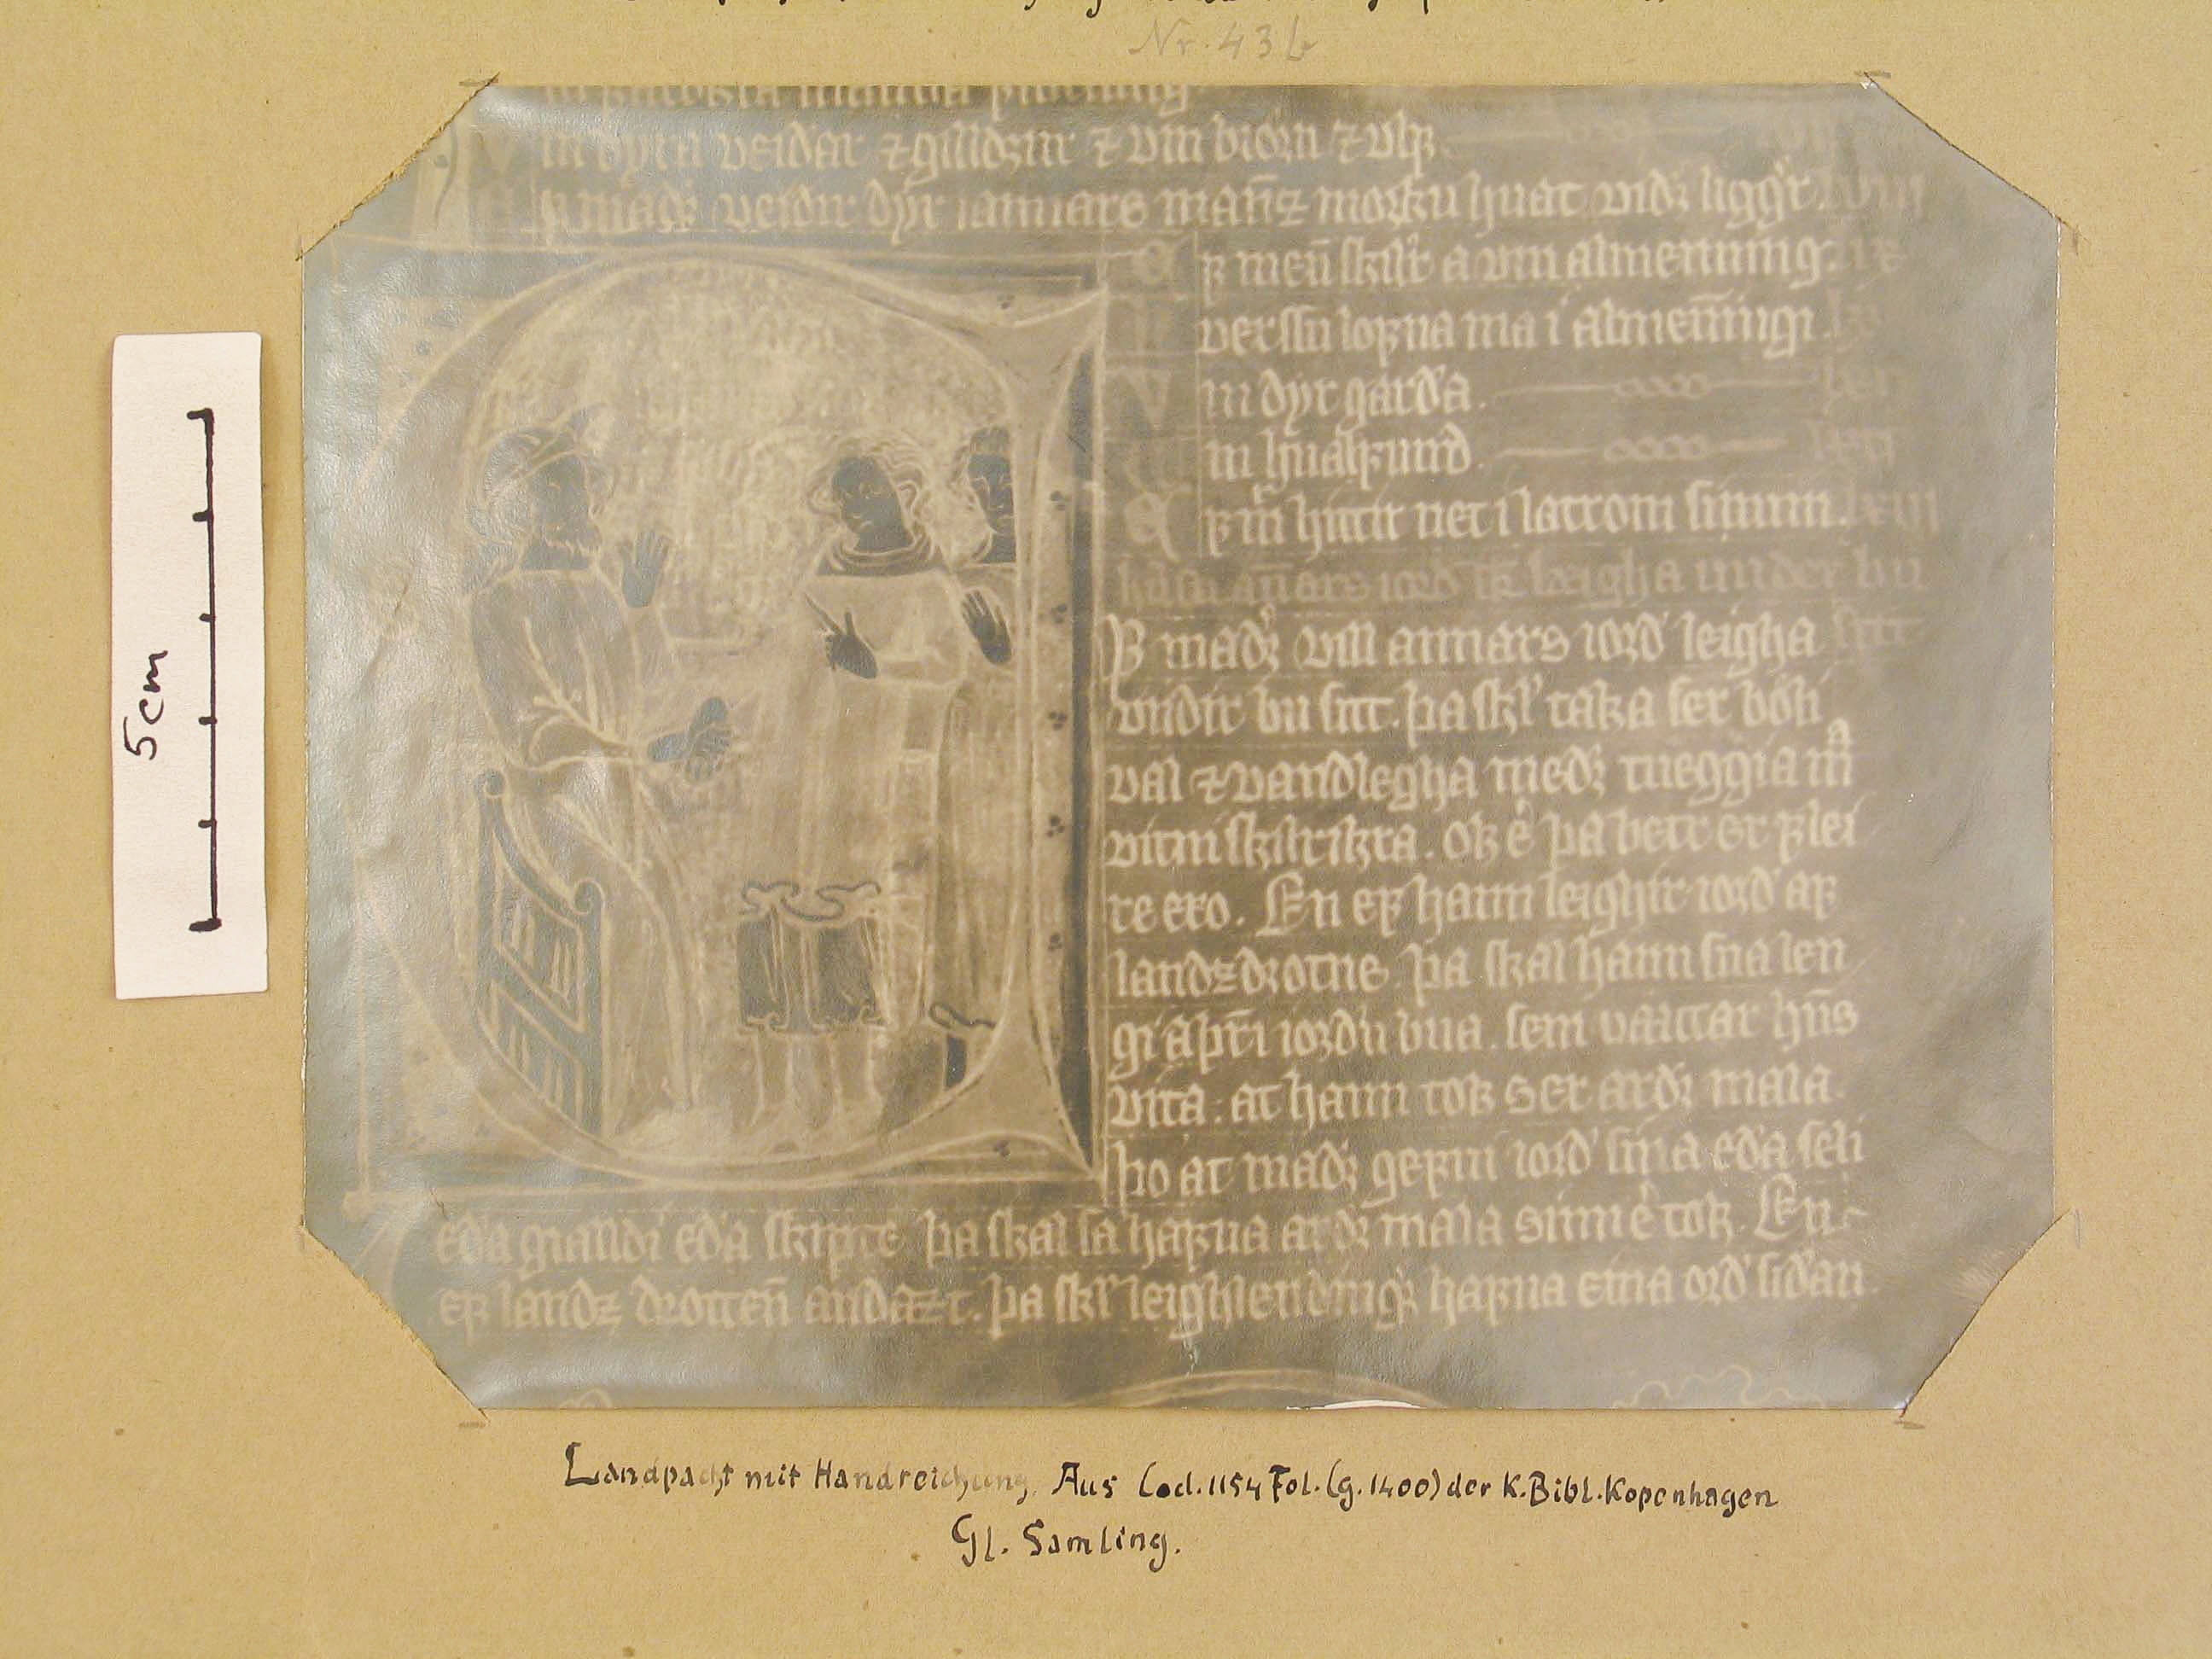 Nr. 43 b
m dyra veidar ⁊ gilldzur ⁊ vm biorn ⁊ vlꝼ
ꝼ madꝛ veidir dyr iannars mannz moꝛku huat vidꝛ liggr. lviii
Eꝼ menn skilr a vm almenning. lix
versu loꝼna ma i almenningi. lx
Vm dyr garda. lxi
Vm hualꝼund. lxii
Eꝼ madr hittir net i latrom sinum. lxiii
annars ioꝛd leigha under bu
ꝼ madꝛ vill annars ioꝛd leigha sitt
vndir bu sitt. þa skl taka ser boli
val ⁊ vandlegha medꝛ tueggia mᷓ
vitni skilrikra. ok e þa betr er ꝼlei
re ero. En eꝼ hann leighir ioꝛd aꝼ
landzdꝛotne. þa skal hann sua len
gi ioꝛdu bua. sem vattar hns
vita: at hann tok ser ardꝛ mala.
þo at madꝛ geꝼui ioꝛd sina eda seli
eda gialldi eda skipte þa skal sa haꝼua ardꝛ mala sinn e tok. En
eꝼ landz dꝛotten andazt. þa skl leighlendingꝛ haꝼua eina oꝛd sidan.
5cm
Landpacht mit Handreichung. Aus Cod. 1154 Fol. (g. 1400) der K. Bibl. Kopenhagen
Gl. Samling.